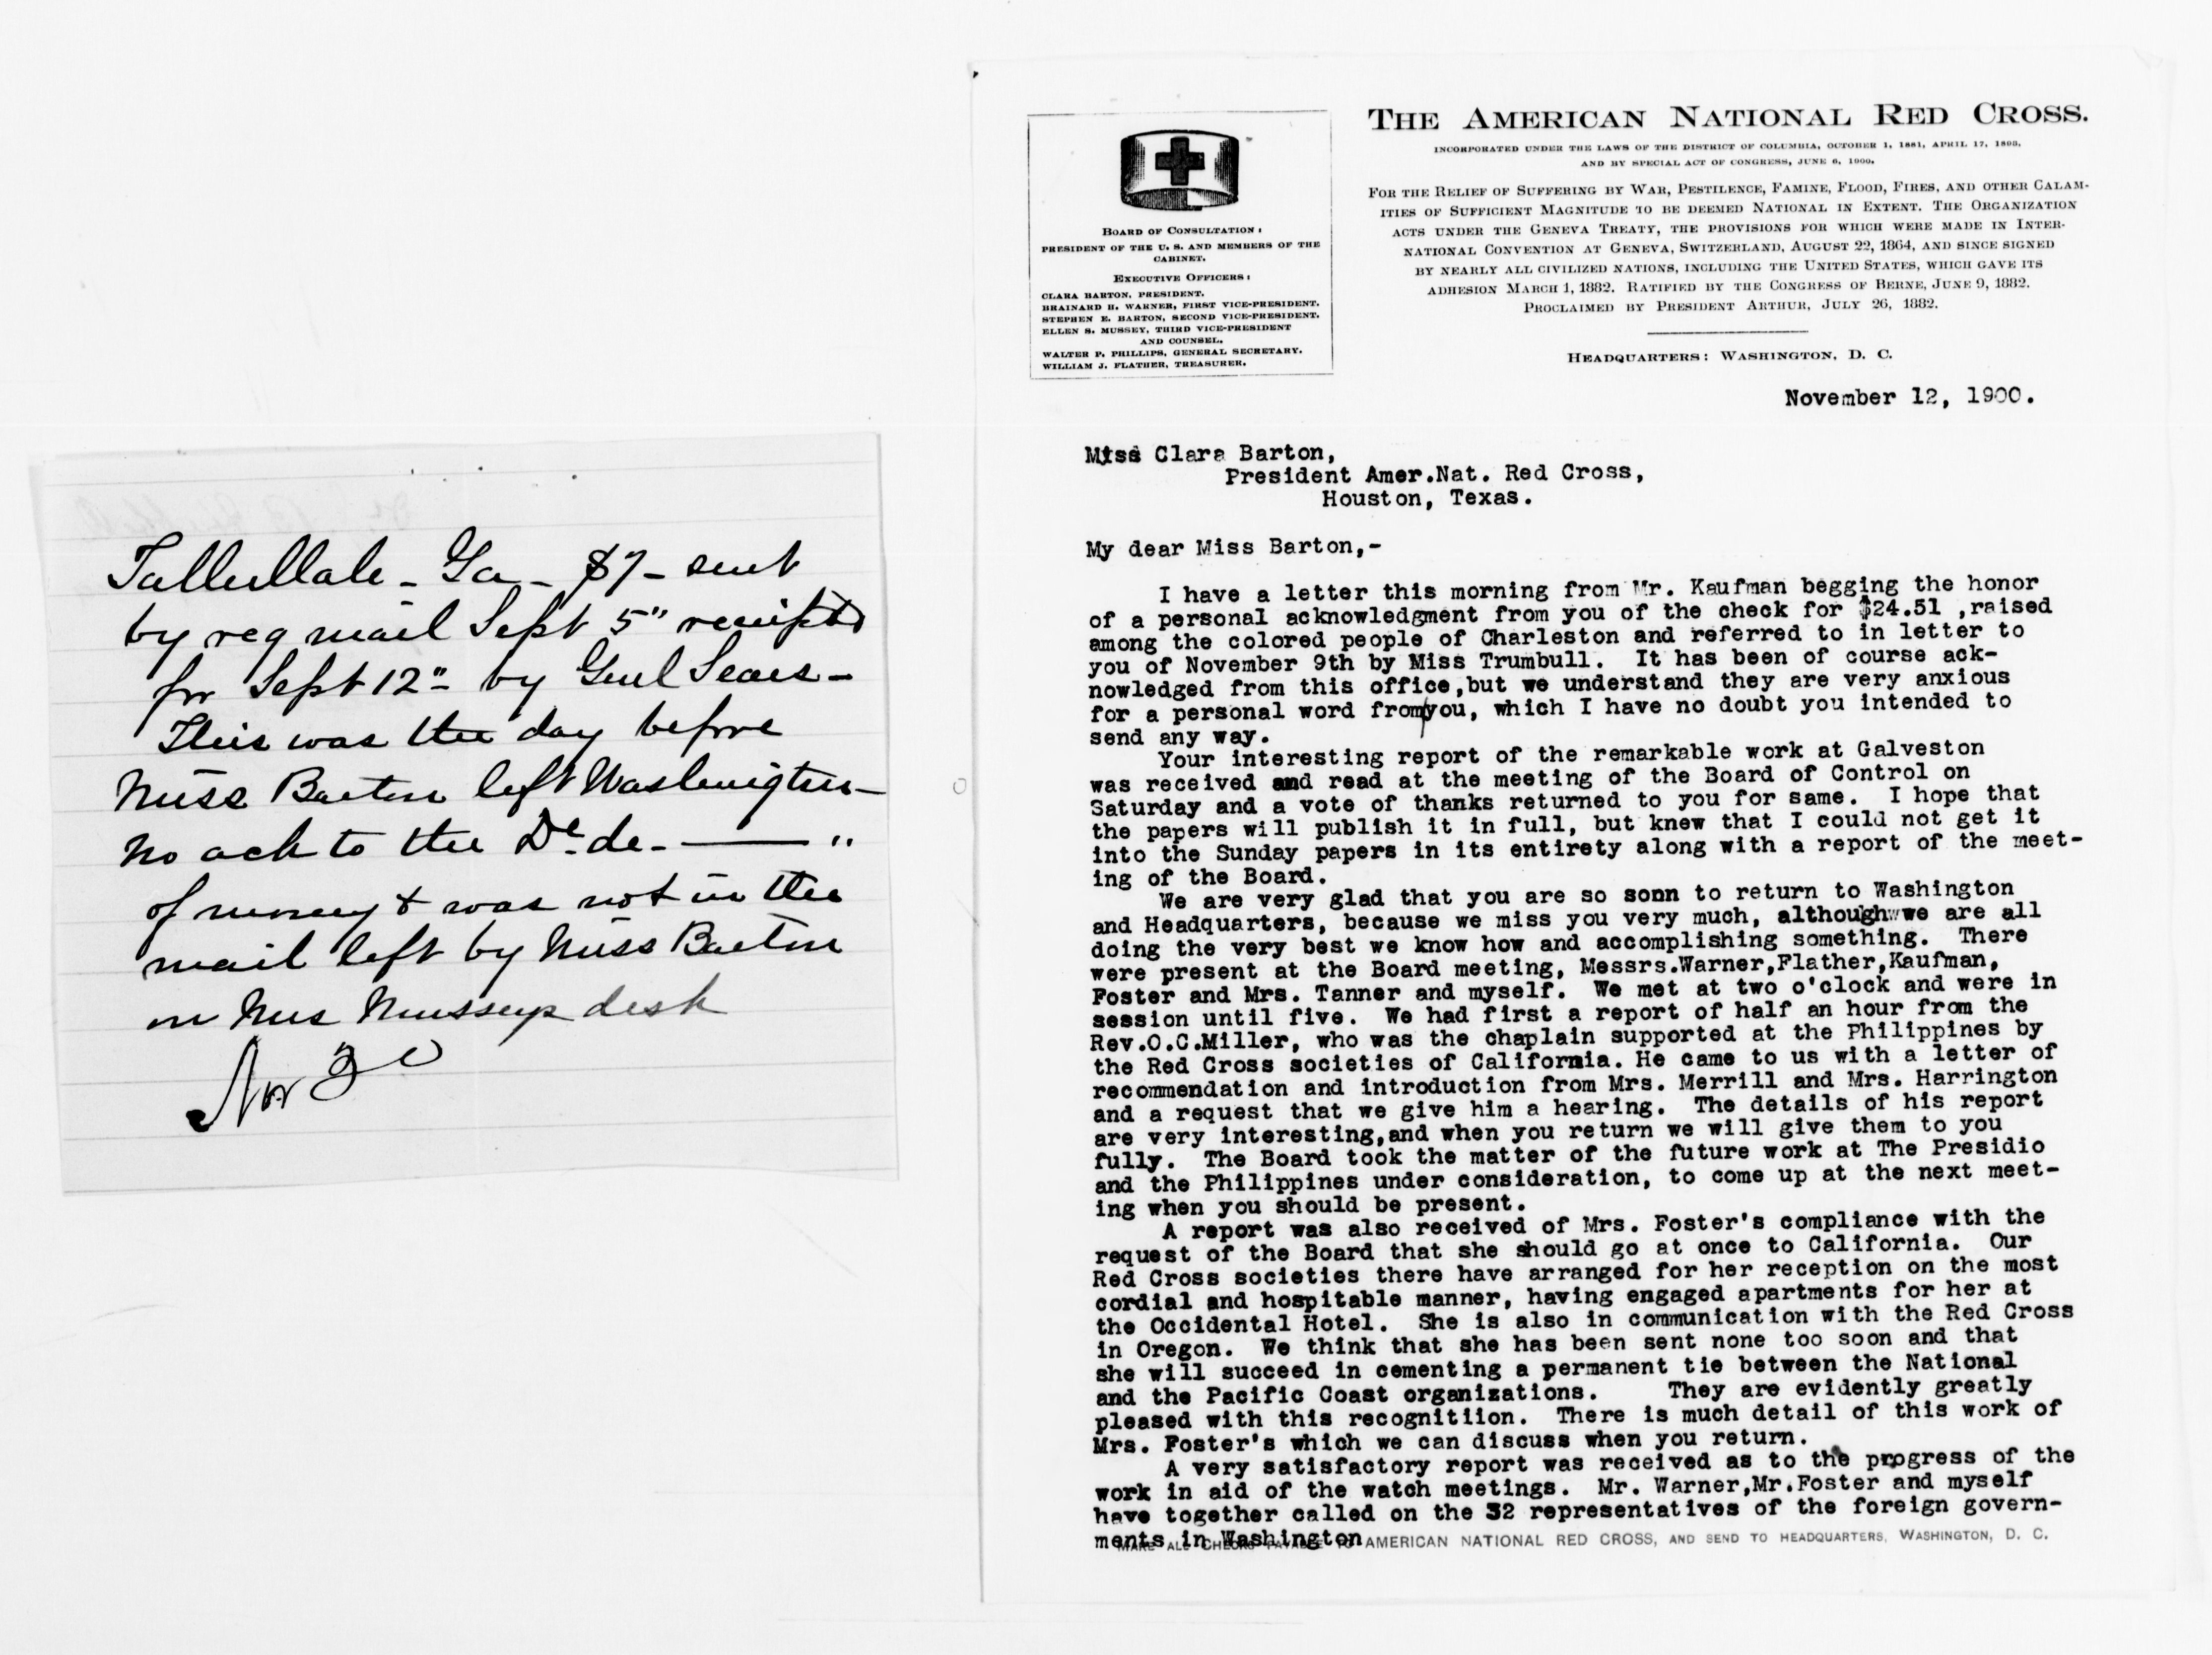 Tallulllale - Ga - $7 - sent
by reg mail Sept 5" receipted
for Sept 12" - by Genl Sears -
This was the day before
Miss Barton left Washington -
No ack to the Dr. de - ——— "
of money & was not in the
mail left by Miss Barton
on Mrs Musseys desk
Nov
THE AMERICAN NATIONAL RED CROSS.
INCORPORATED UNDER THE LAWS OF THE DISTRICT OF COLUMBIA, OCTOBER 1, 1881, APRIL 17, 1893,
AND BY SPECIAL ACT OF CONGRESS, JUNE 6, 1900,
FOR THE RELIEF OF SUFFERING BY WAR, PESTILENCE, FAMINE, FLOOD, FIRES, AND OTHER CALAM-
ITIES OF SUFFICIENT MAGNITUDE TO BE DEEMED NATIONAL IN EXTENT. THE ORGANIZATION
ACTS UNDER THE GENEVA TREATY, THE PROVISIONS FOR WHICH WERE MADE IN INTER-
NATIONAL CONVENTION AT GENEVA, SWITZERLAND, AUGUST 22, 1864, AND SINCE SIGNED
BY NEARLY ALL CIVILIZED NATIONS, INCLUDING THE UNITED STATES, WHICH GAVE ITS
ADHESION MARCH 1, 1882. RATIFIED BY THE CONGRESS OF BERNE, JUNE 9, 1882.
PROCLAIMED BY PRESIDENT ARTHUR, JULY 26, 1882.
HEADQUARTERS: WASHINGTON, D. C.
BOARD OF CONSULTATION:
PRESIDENT OF THE U. S. AND MEMBERS OF THE
CABINET.
EXECUTIVE OFFICERS:
CLARA BARTON, PRESIDENT.
BRAINARD H. WARNER, FIRST VICE-PRESIDENT.
STEPHEN E. BARTON, SECOND VICE-PRESIDENT.
ELLEN S. MUSSEY, THIRD VICE-PRESIDENT
AND COUNSEL.
WALTER P. PHILLIPS, GENERAL SECRETARY.
WILLIAM J. FLATHER, TREASURER.
November 12, 1900.
Miss Clara Barton,
President Amer.Nat. Red Cross,
Houston, Texas.
My dear Miss Barton,-
I have a letter this morning from Mr. Kaufman begging the honor
of a personal acknowledgment from you of the check for $24.51 ,raised
among the colored people of Charleston and referred to in letter to
you of November 9th by Miss Trumbull. It has been of course ack-
nowledged from this office,but we understand they are very anxious
for a personal word from/you, which I have no doubt you intended to
send any way.
Your interesting report of the remarkable work at Galveston
was received and read at the meeting of the Board of Control on
Saturday and a vote of thanks returned to you for same. I hope that
the papers will publish it in full, but knew that I could not get it
into the Sunday papers in its entirety along with a report of the meet-
ing of the Board.
We are very glad that you are so sonn to return to Washington
and Headquarters, because we miss you very much, although we are all
doing the very best we know how and accomplishing something. There
were present at the Board meeting, Messrs.Warner,Flather,Kaufman,
Foster and Mrs. Tanner and myself. We met at two o'clock and were in
session until five. We had first a report of half an hour from the
Rev.O.C.Miller, who was the chaplain supported at the Philippines by
the Red Cross societies of California. He came to us with a letter of
recommendation and introduction from Mrs. Merrill and Mrs. Harrington
and a request that we give him a hearing. The details of his report
are very interesting,and when you return we will give them to you
fully. The Board took the matter of the future work at The Presidio
and the Philippines under consideration, to come up at the next meet-
ing when you should be present.
A report was also received of Mrs. Foster's compliance with the
request of the Board that she should go at once to California. Our
Red Cross societies there have arranged for her reception on the most
cordial and hospitable manner, having engaged apartments for her at
the Occidental Hotel. She is also in communication with the Red Cross
in Oregon. We think that she has been sent none too soon and that
she will succeed in cementing a permanent tie between the National
and the Pacific Coast organizations. They are evidently greatly
pleased with this recognitiion. There is much detail of this work of
Mrs. Foster's which we can discuss when you return.
A very satisfactory report was received as to the progress of the
work in aid of the watch meetings. Mr. Warner,Mr.Foster and myself
have together called on the 32 representatives of the foreign govern-
ments in Washington
MAKE ALL CHECKS PAYABLE TO AMERICAN NATIONAL RED CROSS, AND SEND TO HEADQUARTERS, WASHINGTON, D. C.